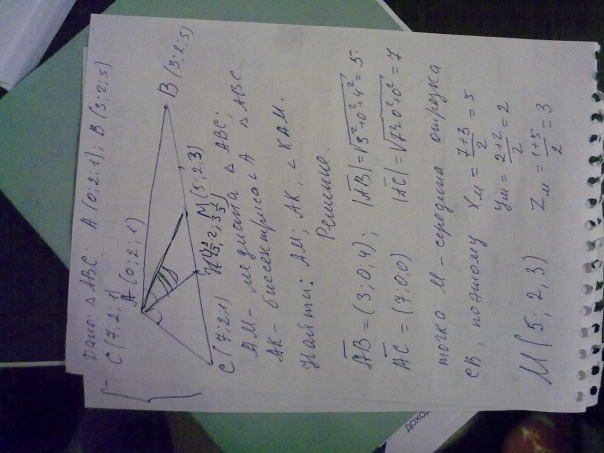 Дано: △ ABC: A (0; 2; 1); B (3; 2; 5)
C (7; 2; 1
A (0; 2; 1)
B (3; 2; 5)
M (5; 2; 3)
C (7; 2; 1)
AM - медиана △ ABC;
AK - биссектриса ∠ A △ ABC.
Найти: AM; AK; ∠ KAM.
Решение.
AB = (3; 0; 4); |AB| = √3²+0²+4² = 5;
AC = (7; 0; 0) |AC| = √7²+0²+0² = 7
точка M - середина отрезка
CB, поэтому X_M = (7+3)/2 = 5
Y_M = (2+2)/2 = 2
Z_M = (1+5)/2 = 3
M (5; 2, 3)